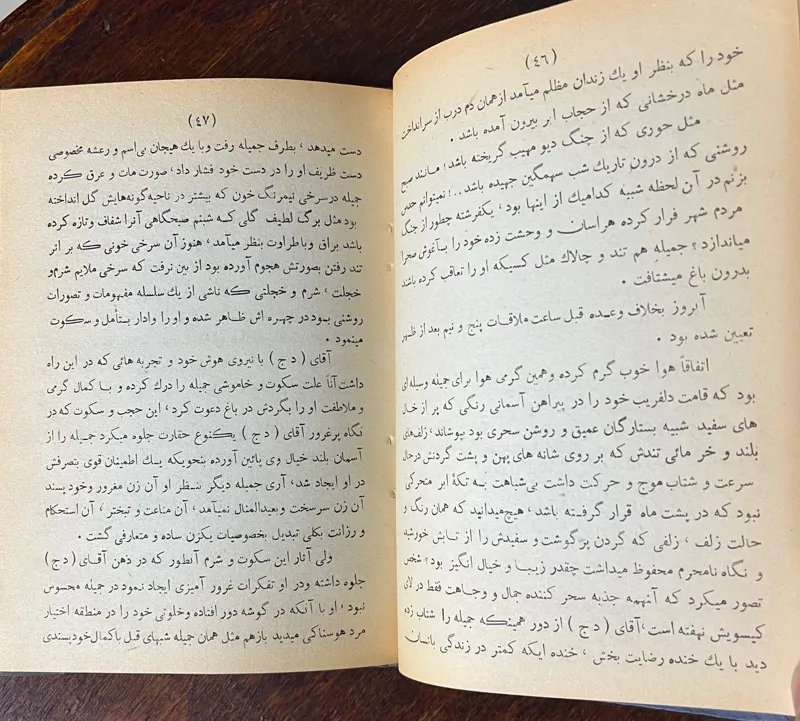 (٤٦)
خود را که بنظر او یك زندان مظلم میآمد از همان دم درب از سر انداخت
مثل ماه درخشانی که از حجاب ابر بیرون آمده باشد .
مثل حوری که از چنگ دیو مهیب گریخته باشد ! مانند صبح
روشنی که از درون تاریك شب سهمگین جهیده باشد..! نمیتوانم حدس
بزنم در آن لحظه شبیه کدامیك از اینها بود ، یکفرشته چطور از چنگ
مردم شهر فرار کرده هراسان و وحشت زده خود را بآغوش صحرا
میاندازد ؟ جمیله هم تند و چالاك مثل کسیکه او را تعاقب کرده باشند
بدرون باغ میشتافت .
آنروز بخلاف وعده قبل ساعت ملاقات پنج و نیم بعد از ظهر
تعیین شده بود .
اتفاقاً هوا خوب گرم کرده وهمین گرمی هوا برای جمیله وسیله ای
بود که قامت دلفریب خود را در پیراهن آسمانی رنگی که پر از خال
های سفید شبیه بستارگان عمیق و روشن سحری بود بپوشاند ، زلفهای
بلند و خر مائی تندش که بر روی شانه های پهن و پشت گردنش درحال
سرعت و شتاب موج و حرکت داشت بی‌شباهت بـه تکهٔ ابر متحرکی
نبود که در پشت ماه قرار گرفته باشد ، هیچ میدانید که همان رنگ و
حالت زلف ، زلفی که گردن پرگوشت و سفیدش را از تابش خورشید
و نگاه نامحرم محفوظ میداشت چقدر زیبا و خیال انگیز بود؟ شخص
تصور میکرد که آنهمه جذبه سحر کننده جمال و وجاهت فقط در لای
کیسویش نهفته است ، آقای ( د ج ) از دور همینکه جمیله را شتاب زده
دید با یك خنده رضایت بخش ، خنده ایکه کمتر در زندگی بانسان
(٤٧)
دست میدهد ، بطرف جمیله رفت وبا یك هیجان بی‌اسم و رعشه مخصوصی
دست ظریف او را در دست خود فشار داد ، صورت مات و عرق کرده
جمیله درسرخی نیمرنگ خون که بیشتر در ناحیه گونه‌هایش گل انداخته
بود مثل برگ لطیف گلی کـه شبنم صبحگاهی آنرا شفاف وتازه کرده
باشد براق وباطراوت بنظر میآمد ، هنوز آن سرخی خونی که بر اثر
تند رفتن بصورتش هجوم آورده بود از بین نرفت که سرخی ملایم شرم و
خجلت ، شرم و خجلتی که ناشی از یك سلسله مفهومات و تصورات
روشنی بود در چهره اش ظاهر شده و او را وادار بتأمل و سکوت
مینمود .
آقای ( د ج ) با نیروی هوش خود و تجربه هائی که در این راه
داشت آناً علت سکوت و خاموشی جمیله را درك کرده و بـا کمال گرمی
و ملاطفت او را بگردش در باغ دعوت کرد ، این حجب و سکوت که در
نگاه پرغرور آقای ( د ج ) یکنوع حقارت جلوه میکرد جمیله را از
آسمان بلند خیال وی پائین آورده بنحویکه یك اطمینان قوی بتصرفش
در او ایجاد شد ، آری جمیله دیگر بنظر او آن زن مغرور وخود پسند
آن زن سرسخت وبعیدالمنال نمیآمد ، آن مناعت و تبختر ، آن استحکام
و رزانت بکلی تبدیل بخصوصیات یکزن ساده و متعارفی گشت .
ولی آثار این سکوت و شرم آنطور که در ذهن آقای ( د ج )
جلوه داشته ودر او تفکرات غرور آمیزی ایجاد نمود در جمیله محسوس
نبود ، او با آنکه در گوشه دور افتاده وخلوتی خود را در منطقه اختیار
مرد هوسناکی میدید بازهم مثل همان جمیله شبهای قبل با کمال خودپسندی